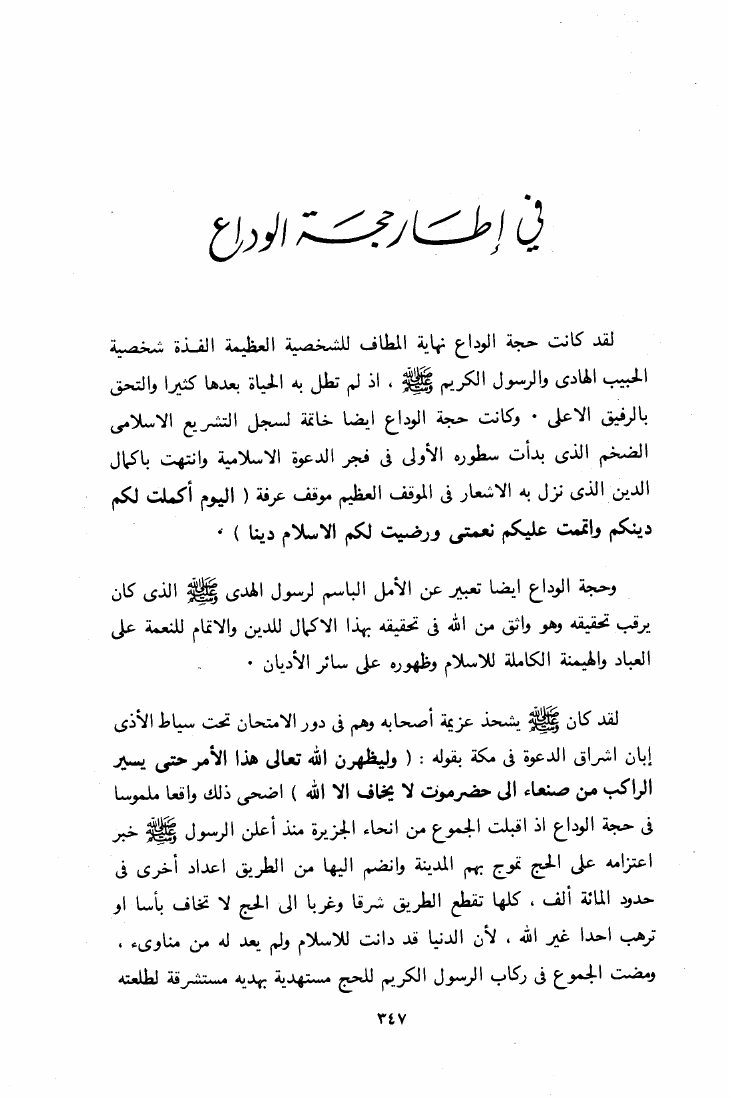 في إطار حجة الوداع
لقد كانت حجة الوداع نهاية المطاف للشخصية العظيمة الفذة شخصية
الحبيب الهادى والرسول الكريم ﷺ ، اذ لم تطل به الحياة بعدها كثيرا والتحق
بالرفيق الاعلى . وكانت حجة الوداع ايضا خاتمة لسجل التشريع الاسلامى
الضخم الذى بدأت سطوره الأولى فى فجر الدعوة الاسلامية وانتهت باكمال
الدين الذى نزل به الاشعار فى الموقف العظيم موقف عرفة ( اليوم أكملت لكم
دينكم واتممت عليكم نعمتى ورضيت لكم الاسلام دينا ) .
وحجة الوداع ايضا تعبير عن الأمل الباسم لرسول الهدى ﷺ الذى كان
يرقب تحقيقه وهو واثق من الله فى تحقيقه بهذا الاكمال للدين والاتمام للنعمة على
العباد والهيمنة الكاملة للاسلام وظهوره على سائر الأديان .
لقد كان ﷺ يشحذ عزيمة أصحابه وهم فى دور الامتحان تحت سياط الأذى
إبان اشراق الدعوة فى مكة بقوله : ( وليظهرن الله تعالى هذا الأمر حتى يسير
الراكب من صنعاء الى حضرموت لا يخاف الا الله ) اضحى ذلك واقعا ملموسا
فى حجة الوداع اذ اقبلت الجموع من انحاء الجزيرة منذ أعلن الرسول ﷺ خبر
اعتزامه على الحج تموج بهم المدينة وانضم اليها من الطريق اعداد أخرى فى
حدود المائة ألف ، كلها تقطع الطريق شرقا وغربا الى الحج لا تخاف بأسا او
ترهب احدا غير الله ، لأن الدنيا قد دانت للاسلام ولم يعد له من مناوىء ،
ومضت الجموع فى ركاب الرسول الكريم للحج مستهدية بهديه مستشرقة لطلعته
٣٤٧